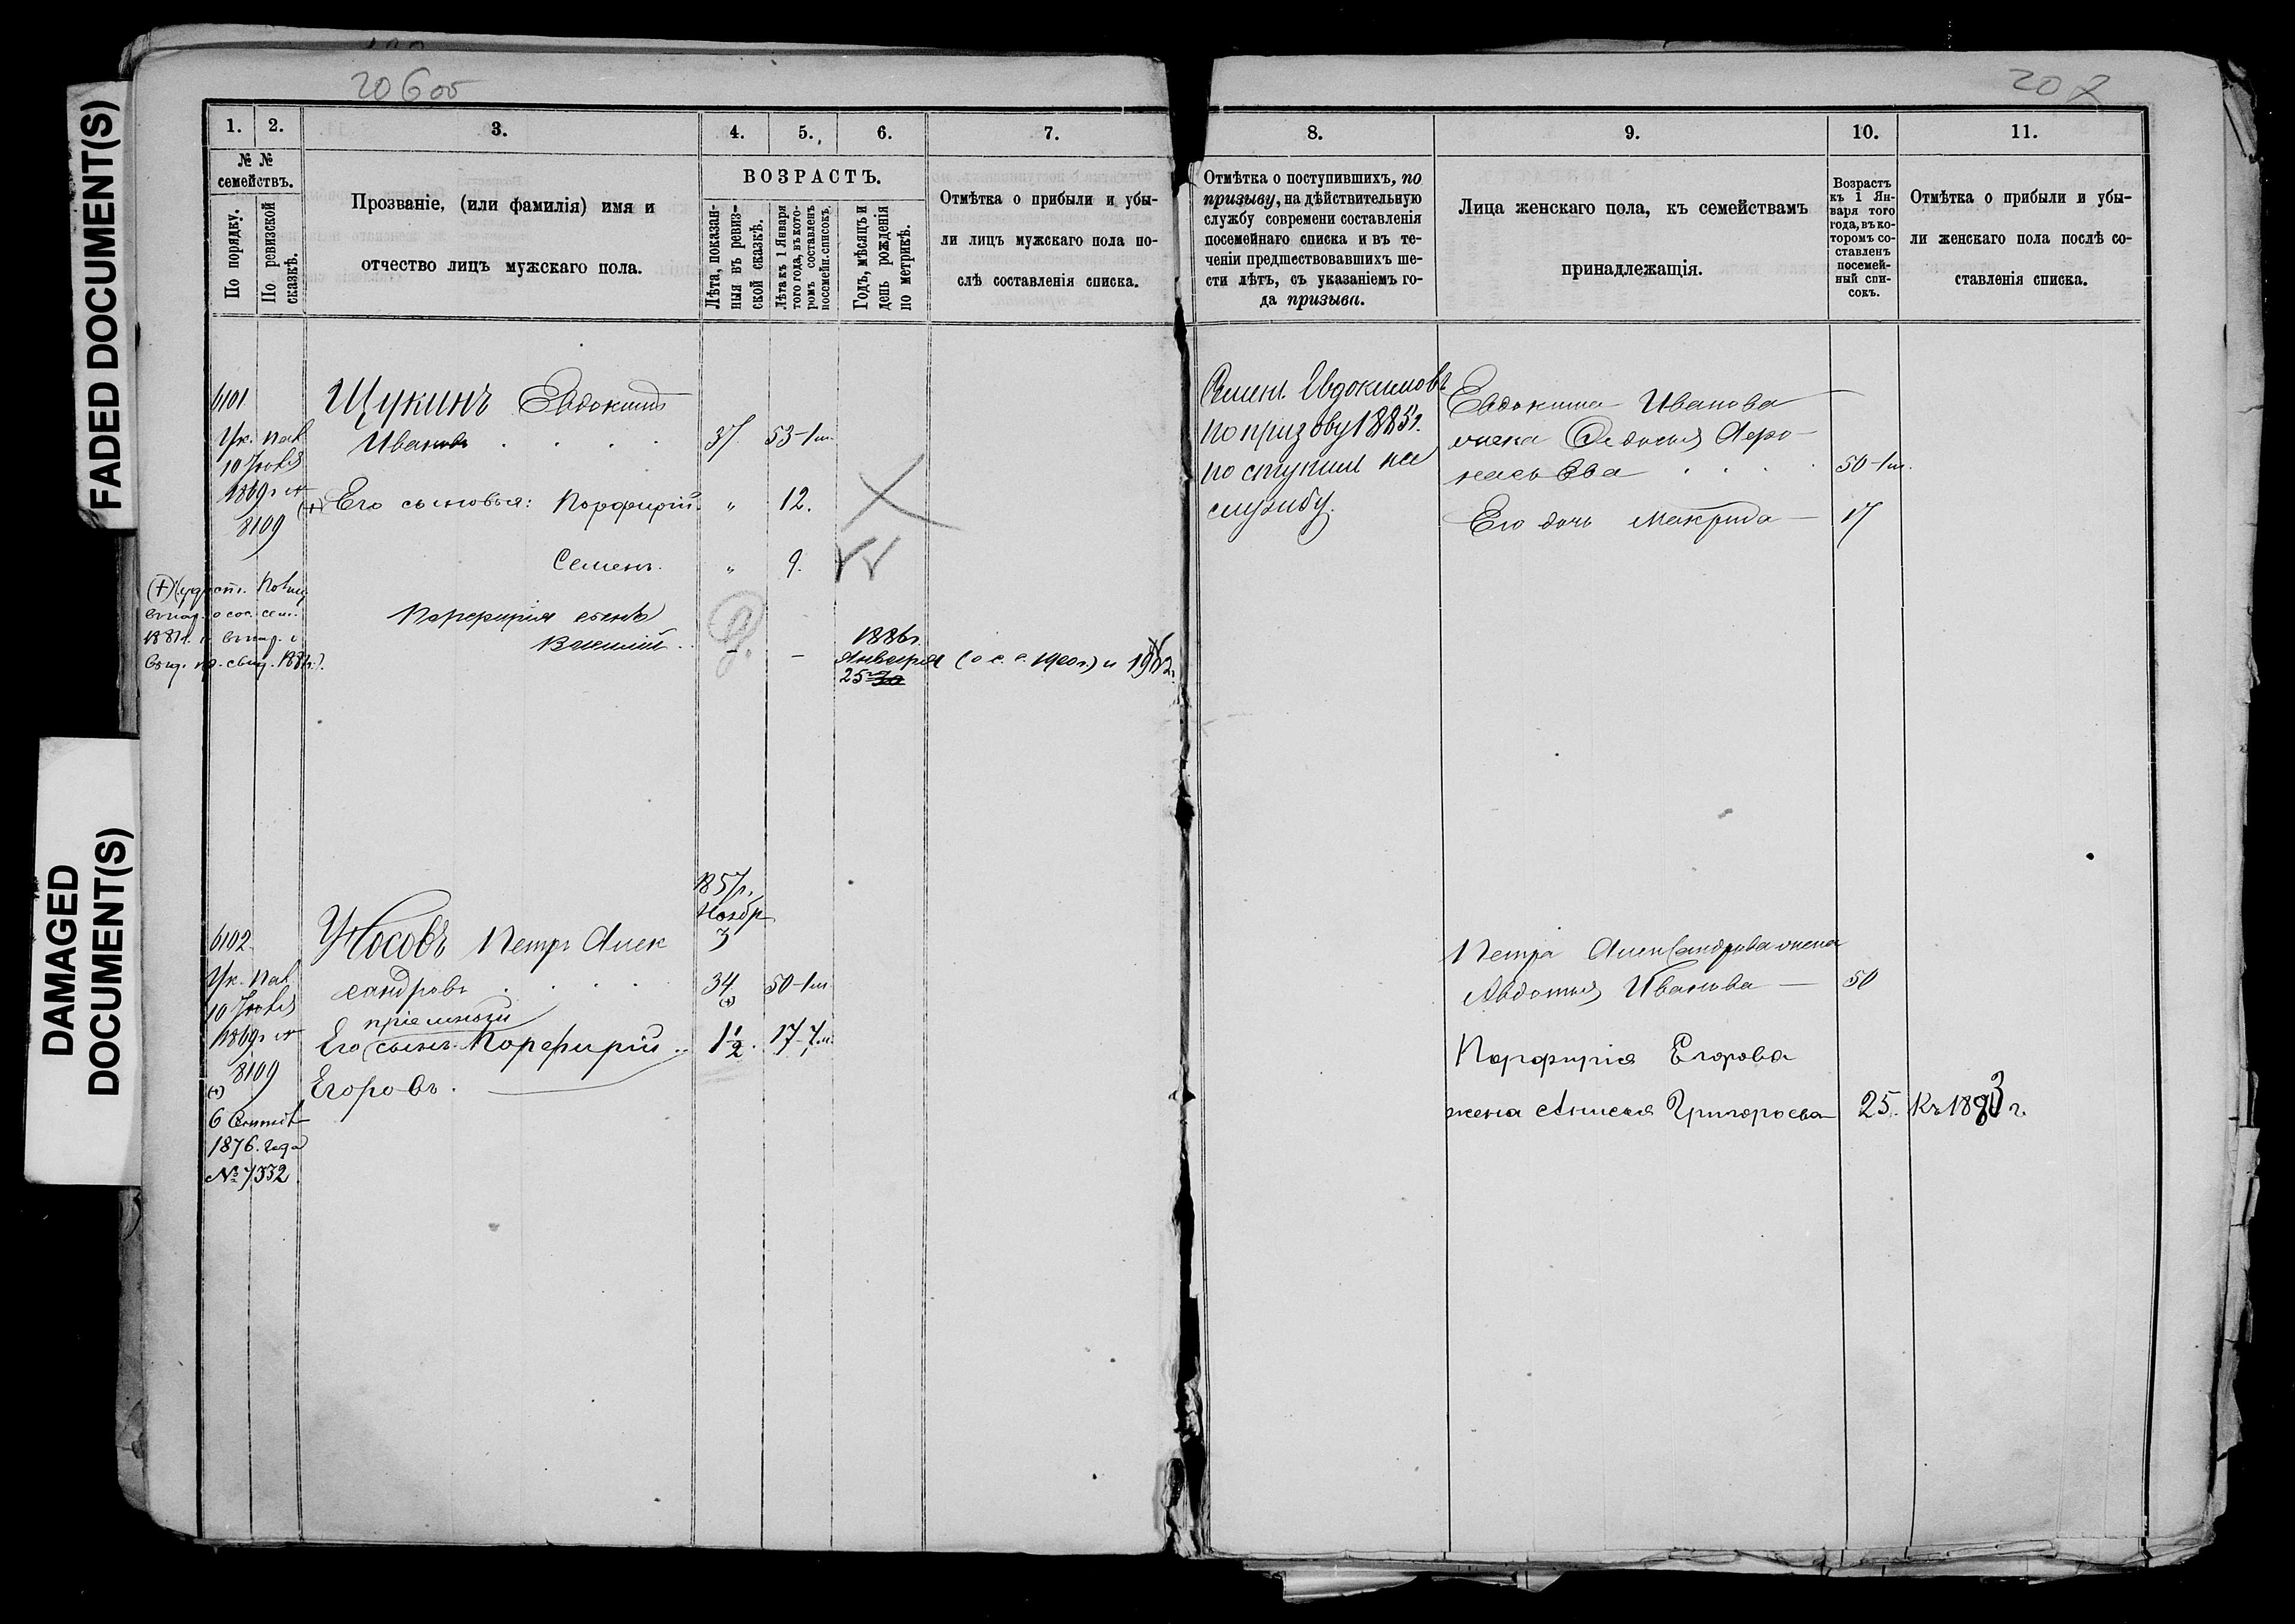 FADED DOCUMENT(S)
DAMAGED
DOCUMENT(S)
206 об
207
1.
2.
3.
4.
5.
6.
7.
№ №
семействъ.
По порядку.
По ревизской
сказкѣ.
Прозваніе, (или фамилія) имя и
отчество лицъ мужскаго пола.
ВОЗРАСТЪ.
Лѣта, показан-
ныя въ ревиз-
ской сказкѣ.
Лѣта къ 1 Января
того года, въ кото-
ромъ составленъ
посемейн. списокъ.
Годъ, мѣсяцъ и
день рожденія
по метрикѣ.
Отмѣтка о прибыли и убы-
ли лицъ мужскаго пола по-
слѣ составленія списка.
6101
Ук. Пал.
10 Іюля
1869 г №
8109
Щукинъ Евдокимъ
Ивановъ
37
53-1 м.
(+) Его сыновья: Порфирій
"
12.
Семенъ.
"
9.
Порфирія сынъ
Василій
-
-
1886 г.
Января
25
(о с. с. 1900 г.) и 1902 г.
1857 г.
Ноябр
3
6102.
Ук. Пал.
10 Іюля
1869 г №
8109
(+)
6 Сентяб
1876 года
№ 7332
Носовъ Петръ Алек
сандровъ
34
(+)
50-1 м
пріемный
Его сынъ Порфирій
1 1/2.
17-7 м.
Егоровъ.
8.
9.
10.
11.
Отмѣтка о поступившихъ, по
призыву, на дѣйствительную
службу современи составленія
посемейнаго списка и въ те-
ченіи предшествовавшихъ ше-
сти лѣтъ, съ указаніемъ го-
да призыва.
Лица женскаго пола, къ семействамъ
принадлежащія.
Возрастъ
къ 1 Ян-
варя того
года, въ ко-
торомъ со-
ставленъ
посемей-
ный спи-
сокъ.
Отмѣтка о прибыли и убы-
ли женскаго пола послѣ со-
ставленія списка.
Семенъ Евдокимовъ
по призыву 1885 г.
поступил на
службу.
Евдокима Иванова
жена Федосья Афо-
насьева
50-1 м.
Его дочь Макрида
17
Петра Александрова жена
Авдотья Иванова
50
Порфирія Егорова
жена Анисья Григорьева
25.
Къ 1893 г.